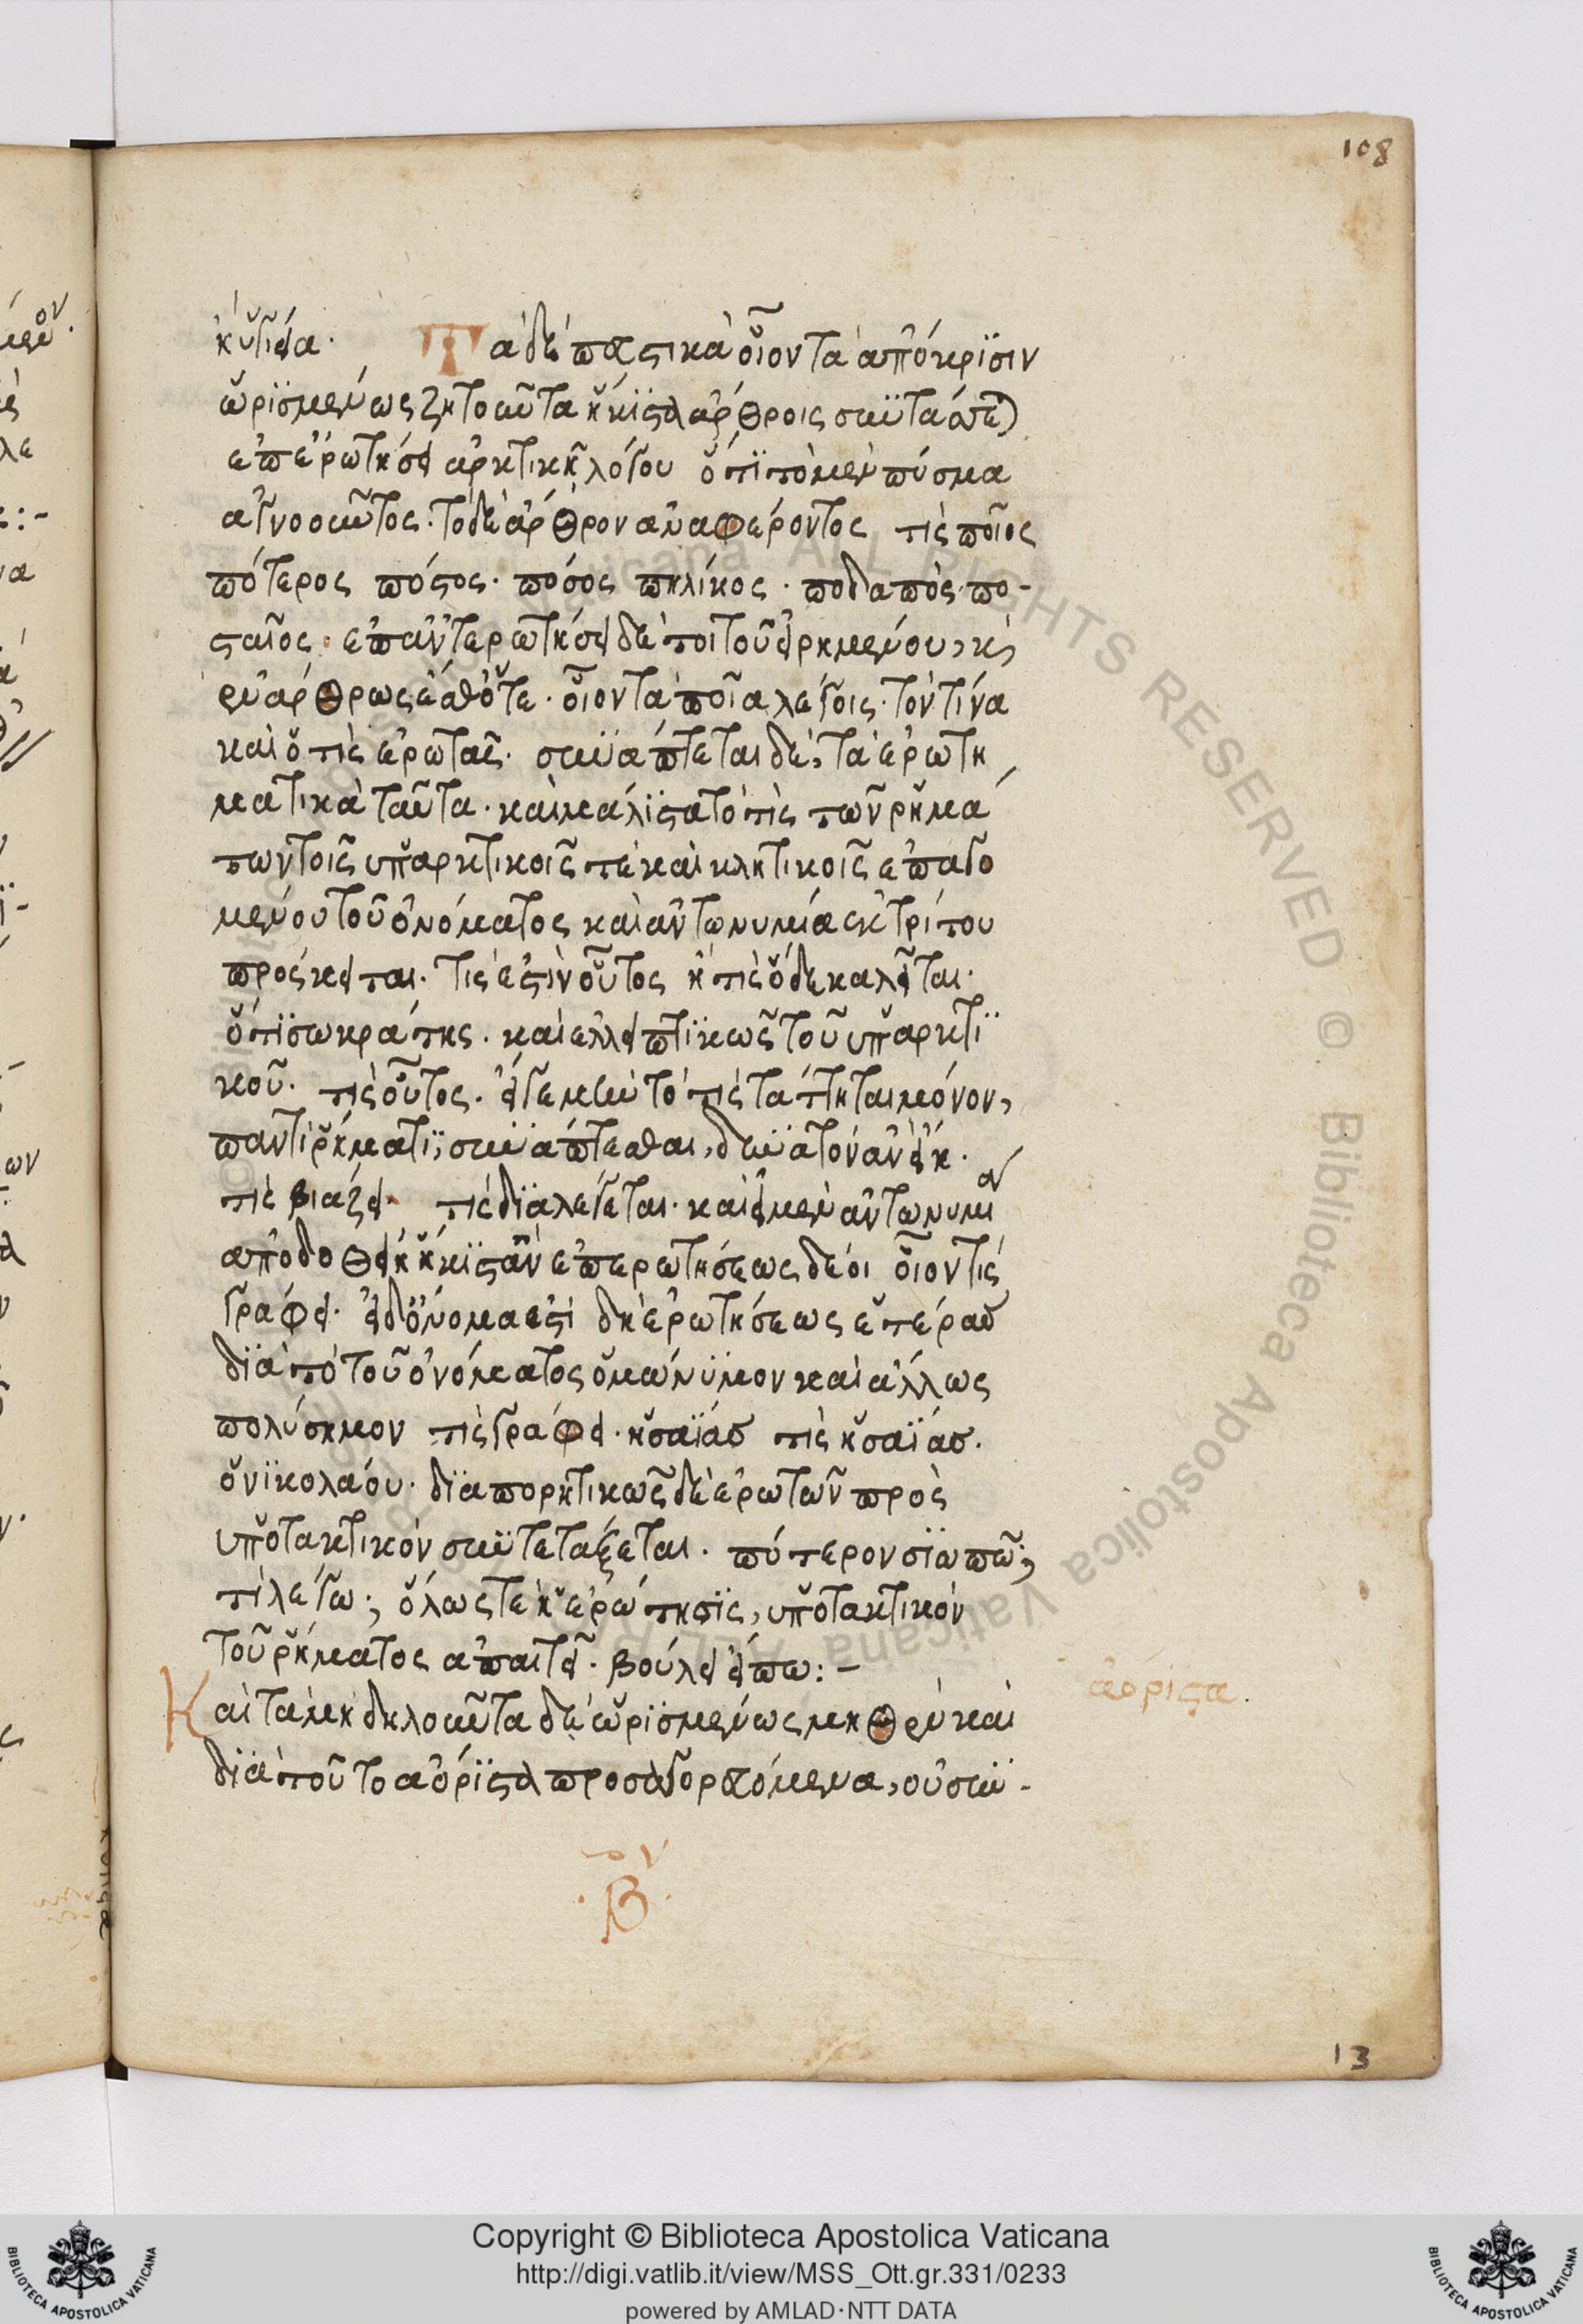 108
ἡ ὑγίεια. Τὰ δὲ πευστικὰ οἷον τὰ ἀπόκρισιν
ὡρισμένως ζητοῦντα ἥκιστα ἄρθροις συντάττεται
ἐπερωτήσει ἀρκτικῆ λόγου ὅτι τὸ μὲν πύσμα
ἀγνοοῦντος. τὸ δὲ ἄρθρον ἀναφέροντος τίς ποῖος
πότερος πόστος. πόσος πηλίκος. ποδαπὸς πο-
σταῖος. ἐπαντερωτήσει δέ τοι τοῦ εἰρημένου, καὶ
ἐνάρθρως ἔσθ' ὅτε. οἷον τὰ ποῖα λέγοις. τὸν τίνα
καὶ ὁ τίς ἐρωτᾶς. συνάπτεται δὲ, τὰ ἐρωτη
ματικὰ ταῦτα. καὶ μάλιστα τὸ τίς τῶν ῥημά
των τοῖς ὑπαρκτικοῖς τὲ καὶ κλητικοῖς ἐπαγο
μένου τοῦ ὀνόματος καὶ ἀντωνυμίας ἐκ τρίτου
πρόσκειται. τίς ἐστὶν οὗτος ἢ τίς ὅδε καλεῖται.
ὅτι σωκράτης. καὶ ἐλλειπτικῶς τοῦ ὑπαρκτι
κοῦ. τίς οὗτος. εἴγε μὴν τὸ τίς τάττηται μόνον,
παντὶ ῥήματι, συνάπτεσθαι, δυνατὸν ἂν εἴη.
τίς βιάζει. τίς διαλέγεται. καὶ εἰ μὲν ἀντωνυμίαν
ἀποδοθείη ἥκιστ' ἂν ἐπερωτήσεως δέοι οἷον τίς
γράφει. εἰ δ' ὄνομα ἐστὶ δὴ ἐρωτήσεως ἑτέρας
διὰ τὸ τοῦ ὀνόματος ὁμώνυμον καὶ ἄλλως
πολύσημον τίς γράφει. ἡσαΐας τίς ἡσαΐας.
ὁ νικολάου. διαπορητικῶς δὲ ἐρωτῶν πρὸς
ὑποτακτικὸν συντετάξεται. πότερον σιωπῶ;
τί λέγω; ὅλως τε ἡ ἐρώτησις, ὑποτακτικὸν
τοῦ ῥήματος ἀπαιτεῖ. βούλει εἴπω:-
Καὶ τὰ μὴ δηλοῦντα δὲ ὡρισμένως μηθὲν καὶ
διὰ τοῦτο ἀόριστα προσαγορευόμενα, οὐ συν-
ἀόριστα.
Β
13
Copyright © Biblioteca Apostolica Vaticana
http://digi.vatlib.it/view/MSS_Ott.gr.331/0233
powered by AMLAD·NTT DATA